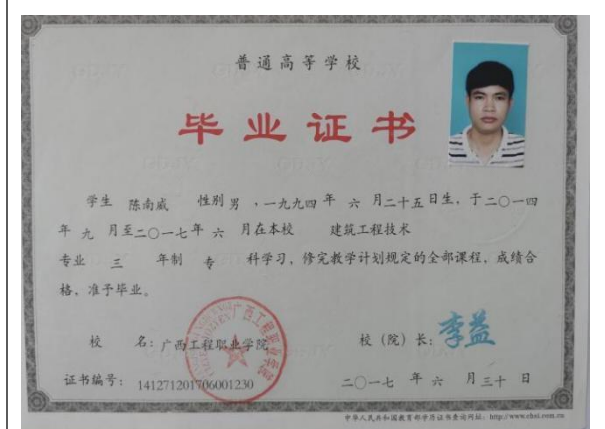 普通高等学校
毕业证书
学生 陈南威 性别 男 ,一九九四 年 六 月二十五日生,于二〇一四
年 九 月至二〇一七年 六 月在本校 建筑工程技术
专业 三 年制 专 科学习,修完教学计划规定的全部课程,成绩合
格,准予毕业。
校 名:广西工程职业学院 校(院)长:李益
广西工程职业学院
证书编号: 141271201706001230 二〇一七 年 六 月三十 日
中华人民共和国教育部学历证书查询网址:http://www.chsi.com.cn